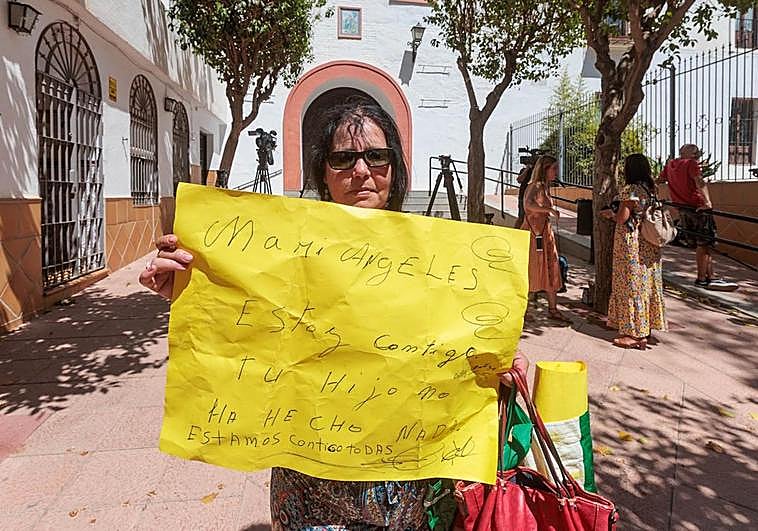 Mami ANGELES
Estoy contigo
TU Hijo no
HA HECHO NADA
ESTAMOS contigo TODAS